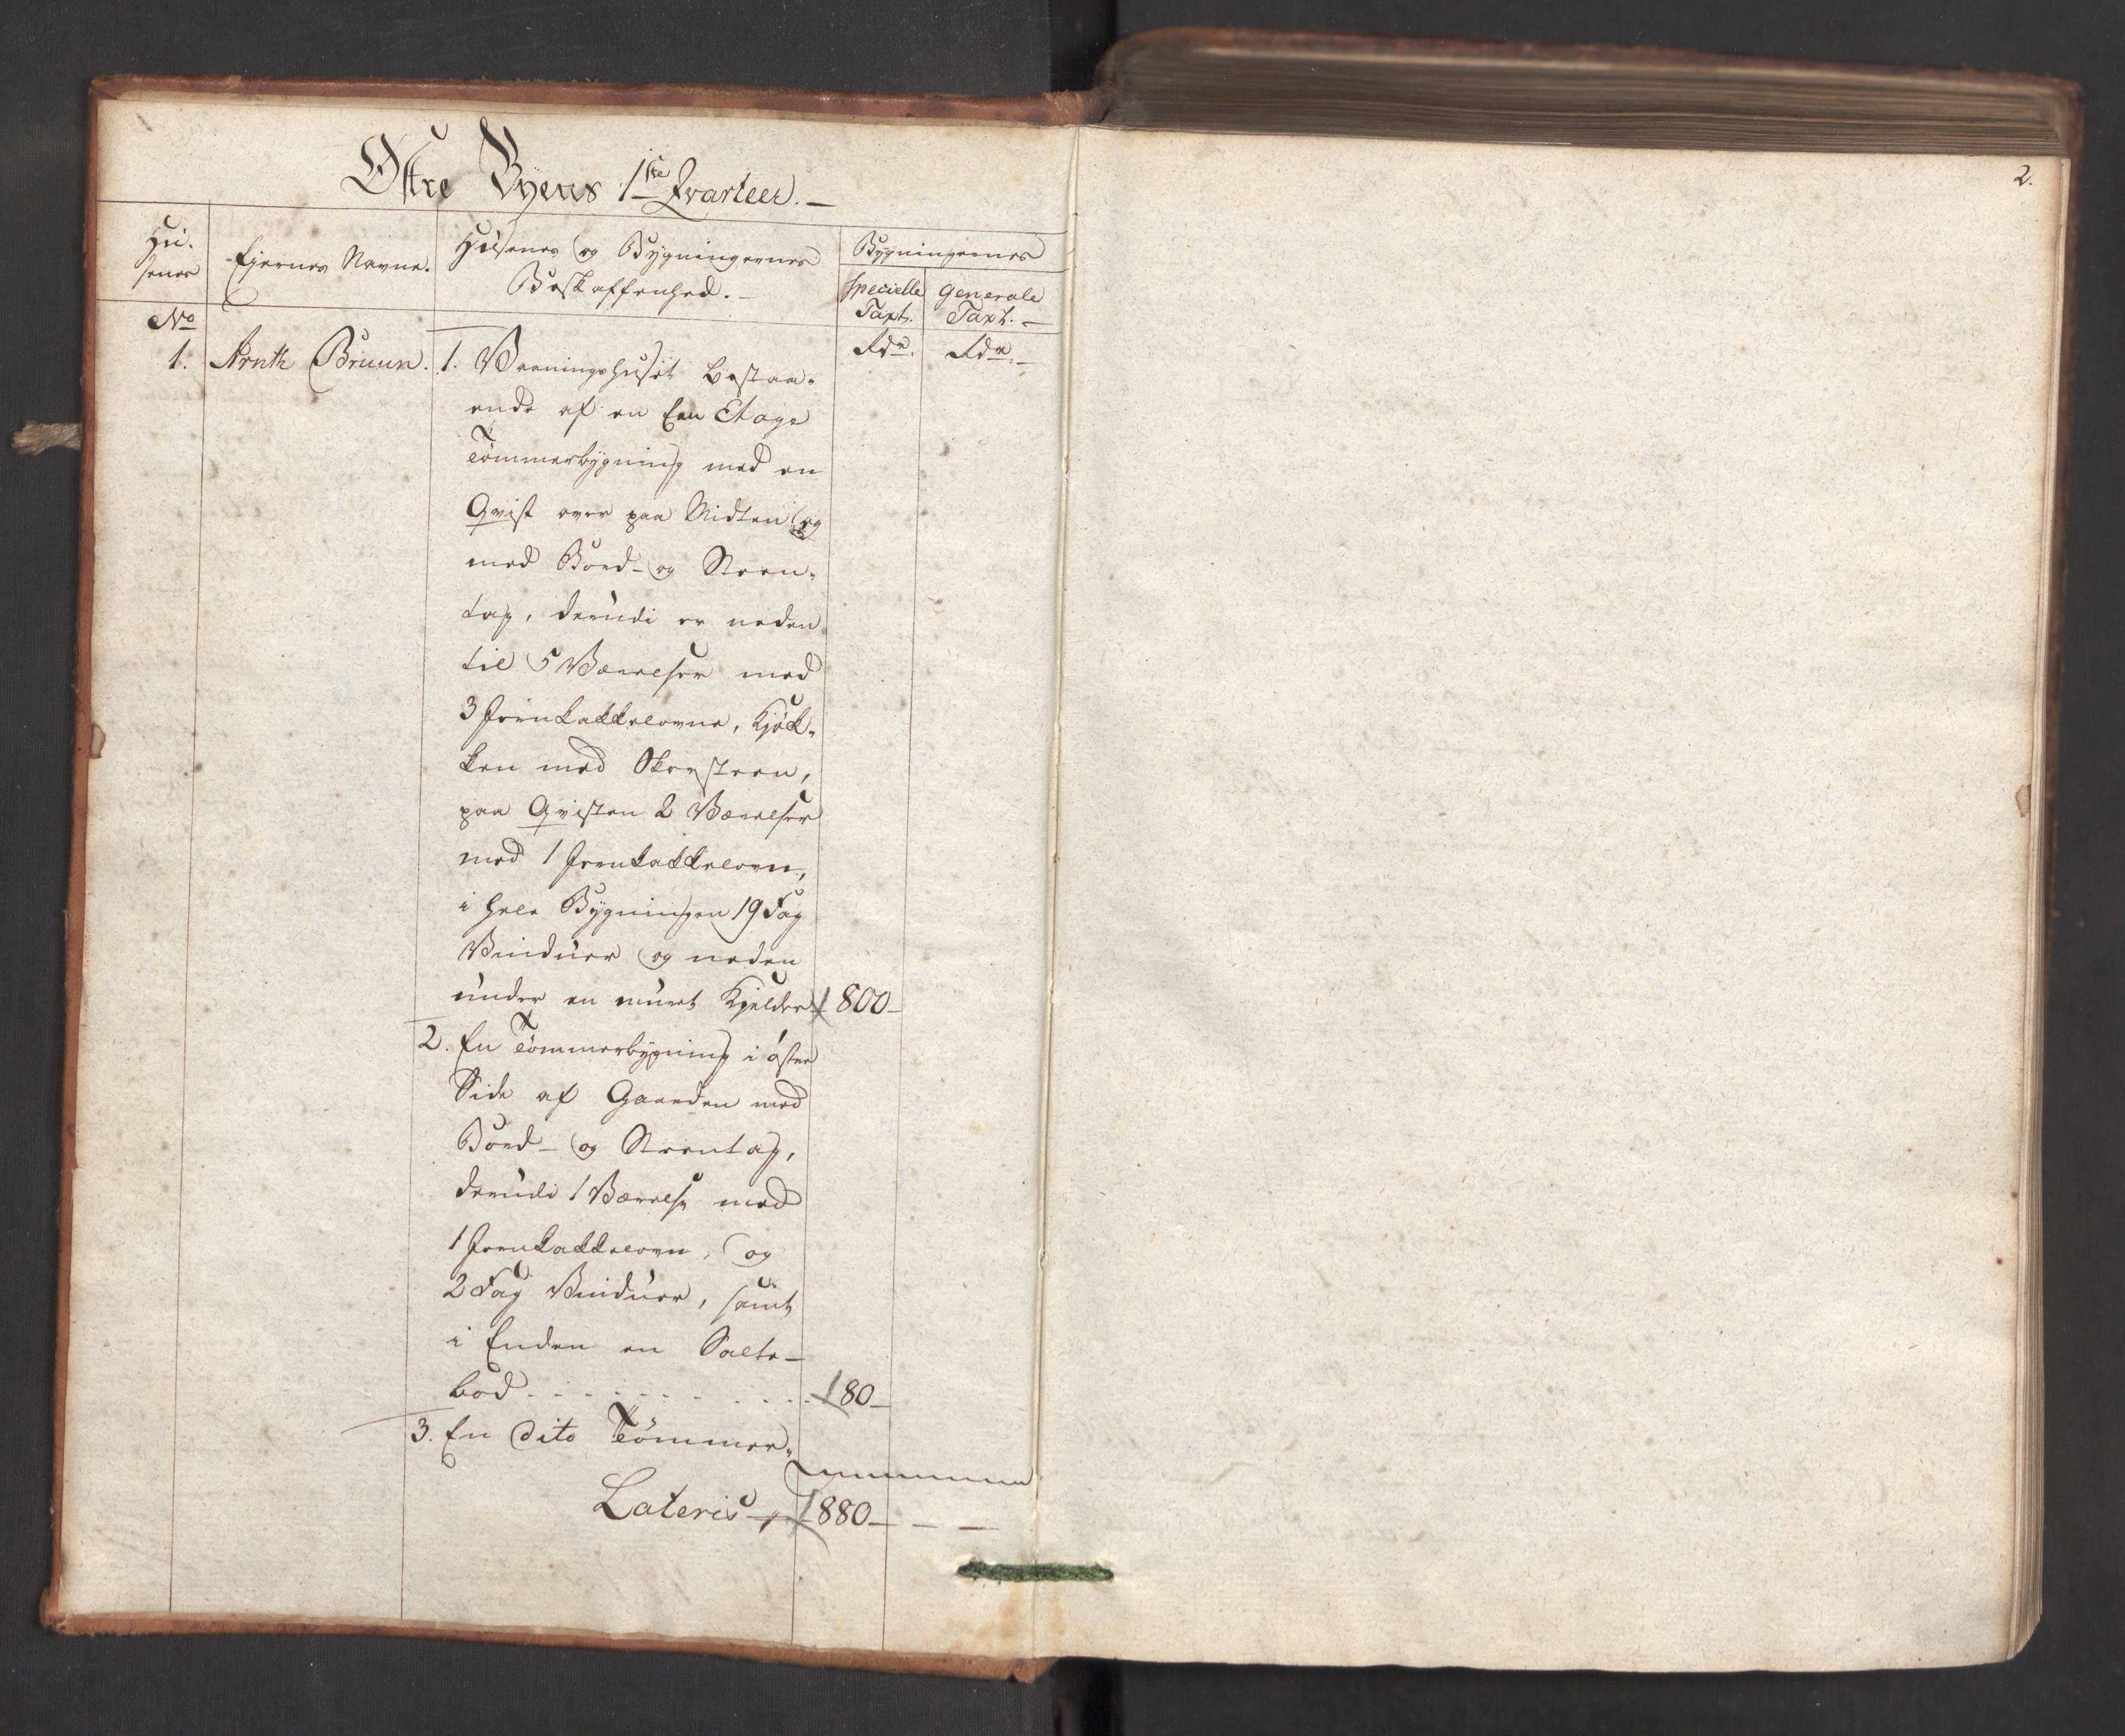 Østre Byens 1ste Qvarteer. —
2.
Hu-
senes
Ejernes Navne.
Husenes og Bygningernes
Beskaffenhed. —
Bygningernes
specielle
Taxt.
Generale
Taxt. —
No
Rdr.
Rdr. —
1. Arnth Bruun. 1. Vaaningshuset bestaa-
ende af en Een Etage
Tømmerbygning med en
Qvist over paa Midten og
med Bord- og Steen-
tag, derudi er neden
til 5 Værelser med
3 Jernkakkelovne, Kjøk-
ken med Skorsteen,
paa Qvisten 2 Værelser
med 1 Jernkakkelovn,
i hele Bygningen 19 Fag
Vinduer og neden
under en muret Kjelder 800 —
2. En Tømmerbygning i østre
Side af Gaarden med
Bord- og Steentag,
derudi 1 Værelse med
1 Jernkakkelovn, og
2 Fag Vinduer, samt
i Enden en Salte-
bod . . . . . . . . . . 80 —
3. En dito Tømmer-
Lateris 880 — — —